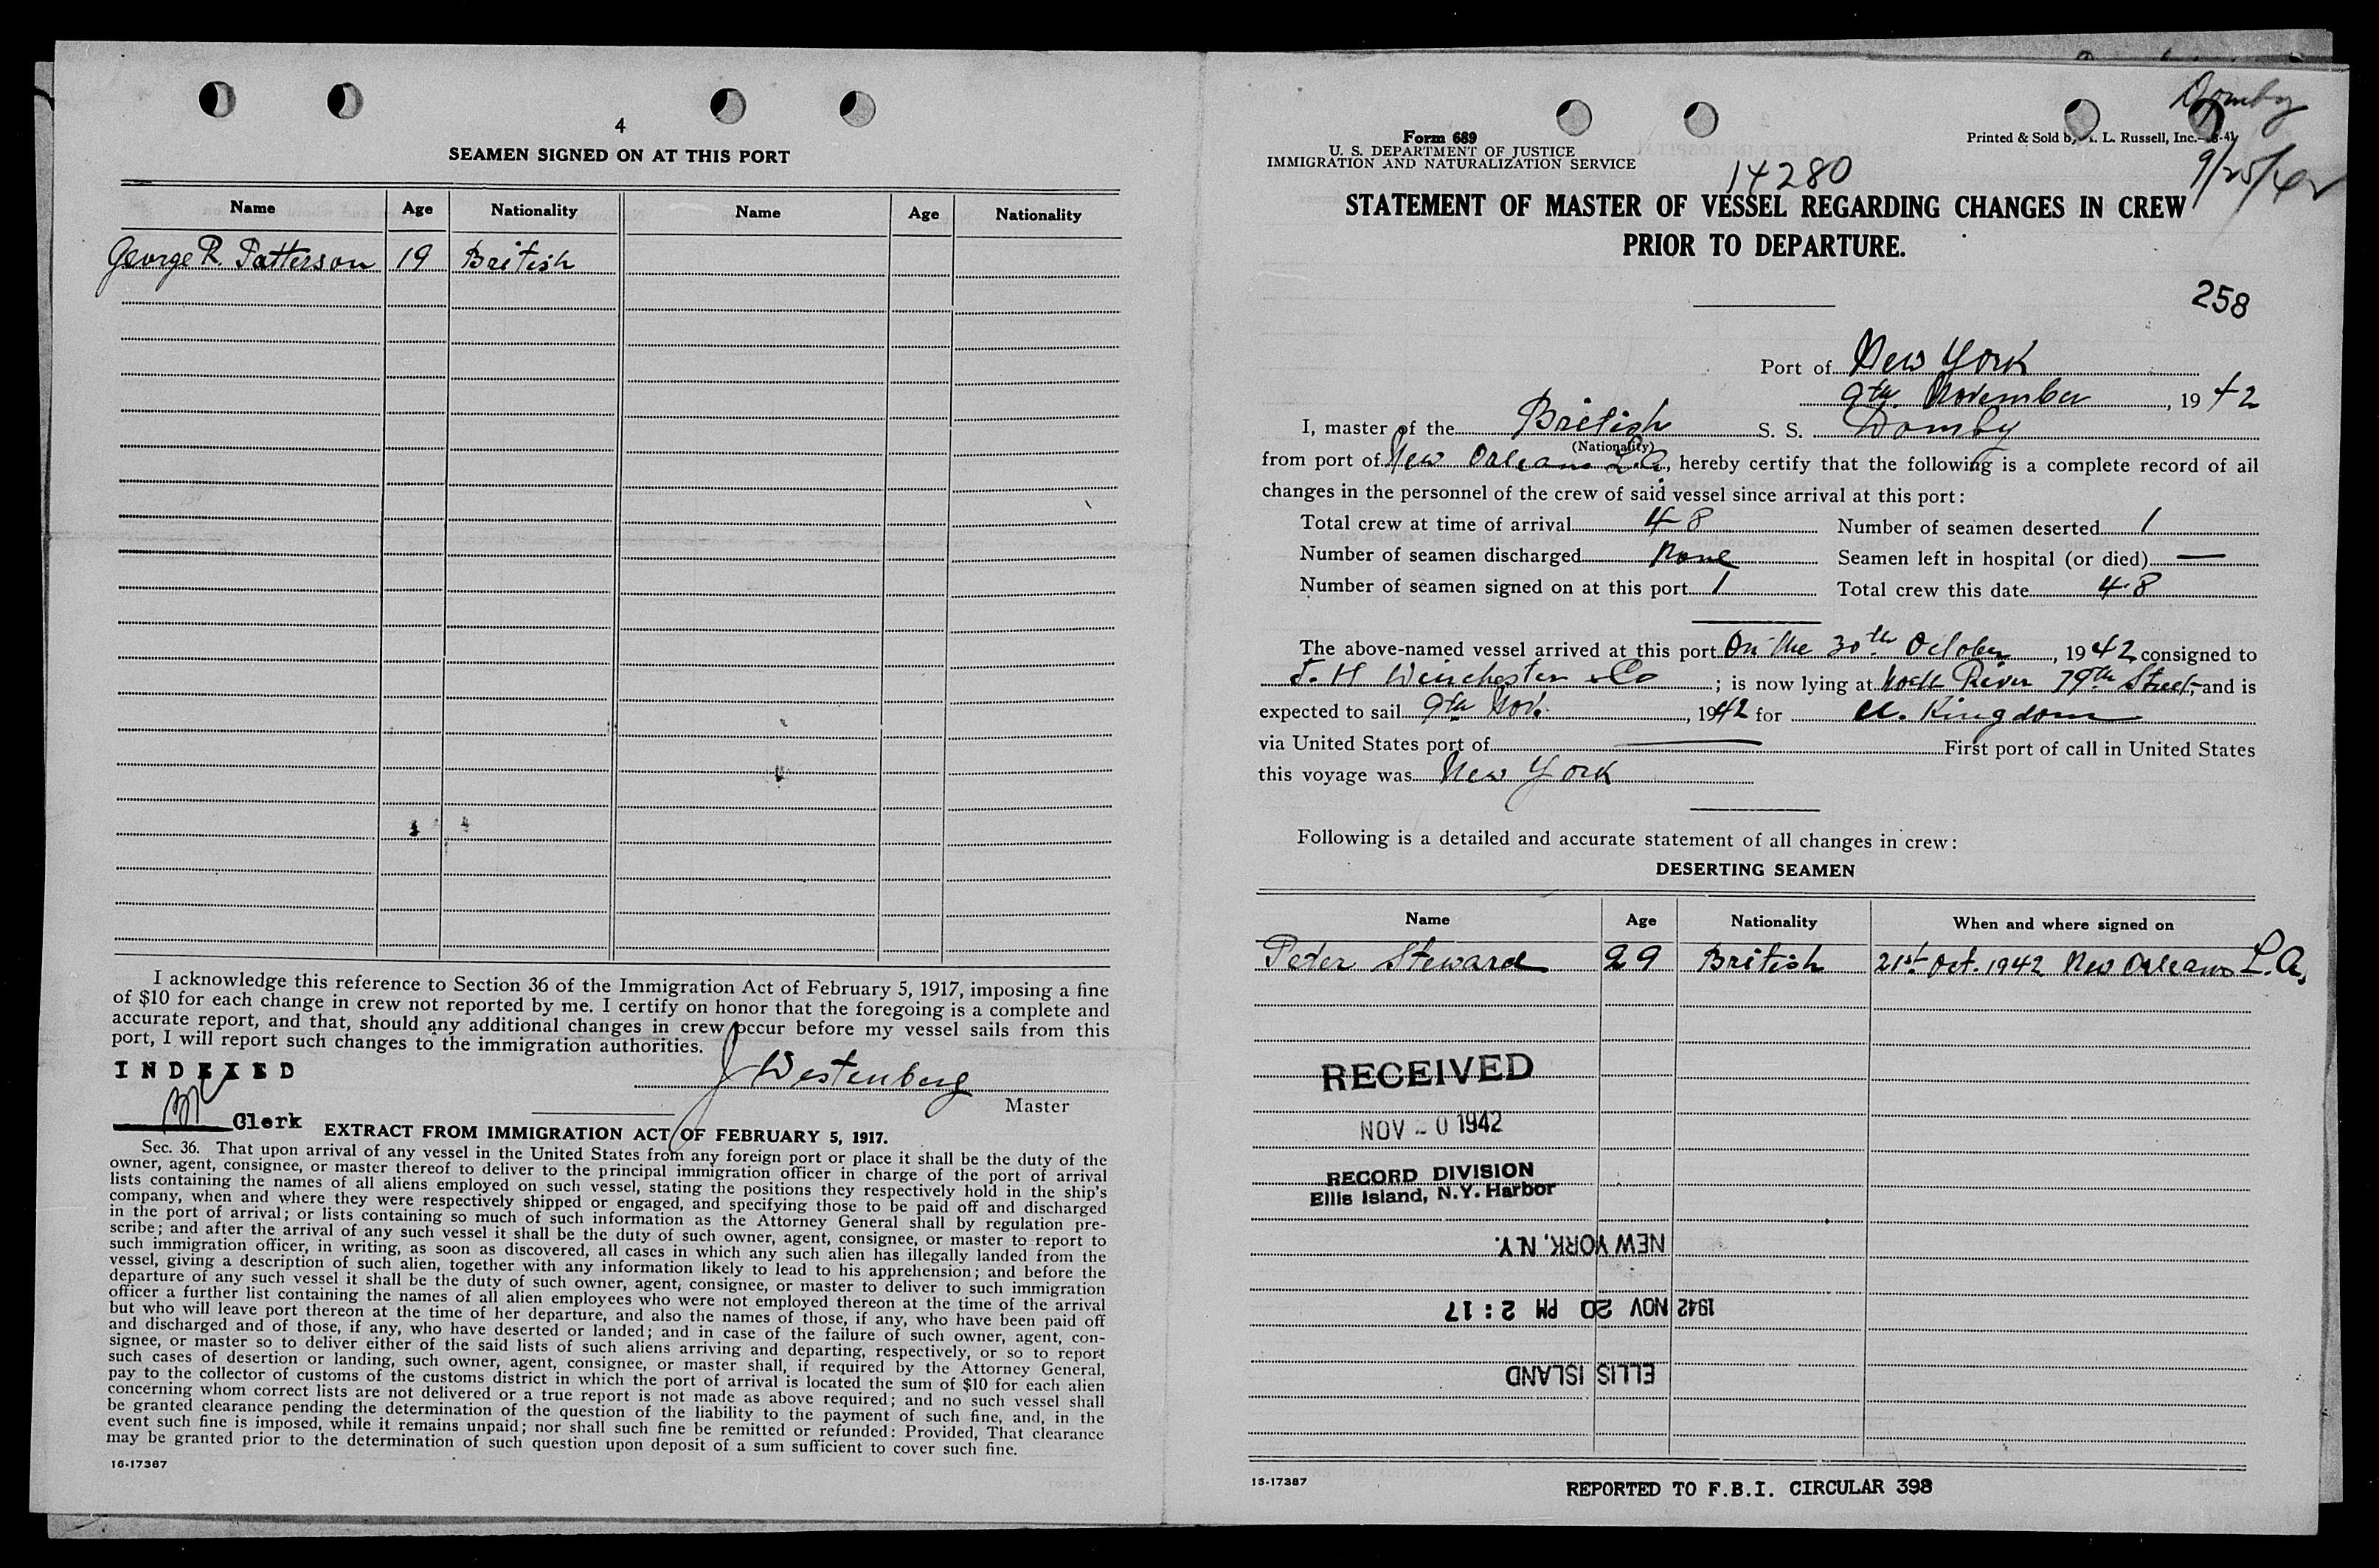 4
SEAMEN SIGNED ON AT THIS PORT
Name Age Nationality Name Age Nationality
George R. Patterson 19 British
I acknowledge this reference to Section 36 of the Immigration Act of February 5, 1917, imposing a fine
of $10 for each change in crew not reported by me. I certify on honor that the foregoing is a complete and
accurate report, and that, should any additional changes in crew occur before my vessel sails from this
port, I will report such changes to the immigration authorities.
INDEXED
J Westenberg
Master
Clerk
EXTRACT FROM IMMIGRATION ACT OF FEBRUARY 5, 1917.
Sec. 36. That upon arrival of any vessel in the United States from any foreign port or place it shall be the duty of the
owner, agent, consignee, or master thereof to deliver to the principal immigration officer in charge of the port of arrival
lists containing the names of all aliens employed on such vessel, stating the positions they respectively hold in the ship's
company, when and where they were respectively shipped or engaged, and specifying those to be paid off and discharged
in the port of arrival; or lists containing so much of such information as the Attorney General shall by regulation pre-
scribe; and after the arrival of any such vessel it shall be the duty of such owner, agent, consignee, or master to report to
such immigration officer, in writing, as soon as discovered, all cases in which any such alien has illegally landed from the
vessel, giving a description of such alien, together with any information likely to lead to his apprehension; and before the
departure of any such vessel it shall be the duty of such owner, agent, consignee, or master to deliver to such immigration
officer a further list containing the names of all alien employees who were not employed thereon at the time of the arrival
but who will leave port thereon at the time of her departure, and also the names of those, if any, who have been paid off
and discharged and of those, if any, who have deserted or landed; and in case of the failure of such owner, agent, con-
signee, or master so to deliver either of the said lists of such aliens arriving and departing, respectively, or so to report
such cases of desertion or landing, such owner, agent, consignee, or master shall, if required by the Attorney General,
pay to the collector of customs of the customs district in which the port of arrival is located the sum of $10 for each alien
concerning whom correct lists are not delivered or a true report is not made as above required; and no such vessel shall
be granted clearance pending the determination of the question of the liability to the payment of such fine, and, in the
event such fine is imposed, while it remains unpaid; nor shall such fine be remitted or refunded: Provided, That clearance
may be granted prior to the determination of such question upon deposit of a sum sufficient to cover such fine.
16-17387
Domby
Form 689
U. S. DEPARTMENT OF JUSTICE
IMMIGRATION AND NATURALIZATION SERVICE
Printed & Sold by L. Russell, Inc.
14280
9/25/42
STATEMENT OF MASTER OF VESSEL REGARDING CHANGES IN CREW
PRIOR TO DEPARTURE.
258
Port of New York
9th November, 1942
I, master of the British S. S. Domby
(Nationality)
from port of New Orleans L.A., hereby certify that the following is a complete record of all
changes in the personnel of the crew of said vessel since arrival at this port:
Total crew at time of arrival 48 Number of seamen deserted 1
Number of seamen discharged None Seamen left in hospital (or died) —
Number of seamen signed on at this port 1 Total crew this date 48
The above-named vessel arrived at this port On the 30th October, 1942 consigned to
J. H Winchester & Co; is now lying at North River 79th Street, and is
expected to sail 9th Nov., 1942 for U. Kingdom
via United States port of — First port of call in United States
this voyage was New York
Following is a detailed and accurate statement of all changes in crew:
DESERTING SEAMEN
Name Age Nationality When and where signed on
Peter Steward 29 British 21st Oct. 1942 New Orleans L.A.
RECEIVED
NOV 20 1942
RECORD DIVISION
Ellis Island, N.Y. Harbor
NEW YORK, N.Y.
1942 NOV 20 PM 2:17
ELLIS ISLAND
15-17387
REPORTED TO F.B.I. CIRCULAR 398